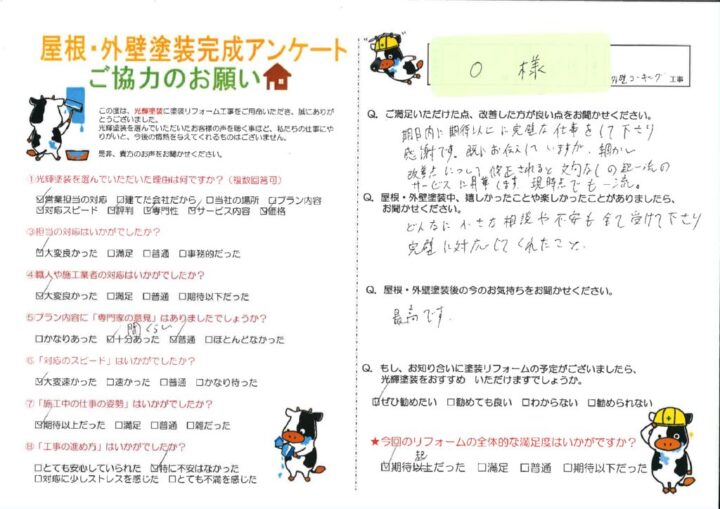 屋根・外壁塗装完成アンケート
ご協力のお願い
この度は、光輝塗装に塗装リフォーム工事をご用命いただき、誠にありがとうございました。
光輝塗装を選んでいただいたお客様の声を聴く事ほど、私たちの仕事にやりがいと、今後の情熱を与えてくれるものはございません。
是非、貴方のお声をお聞かせください。
①光輝塗装を選んでいただいた理由は何ですか?(複数回答可)
☑営業担当の対応 □建てた会社だから □当社の場所 ☑プラン内容
☑対応スピード ☑評判 ☑専門性 ☑サービス内容 ☑価格
③担当の対応はいかがでしたか?
☑大変良かった □満足 □普通 □事務的だった
④職人や施工業者の対応はいかがでしたか?
☑大変良かった □満足 □普通 □期待以下だった
⑤プラン内容に「専門家の意見」はありましたでしょうか?
間くらい
□かなりあった ☑十分あった ☑普通 □ほとんどなかった
⑥「対応のスピード」はいかがでしたか?
☑大変速かった □速かった □普通 □かなり待った
⑦「施工中の仕事の姿勢」はいかがでしたか?
☑期待以上だった □満足 □普通 □雑だった
⑧「工事の進め方」はいかがでしたか?
□とても安心していられた ☑特に不安はなかった
□対応に少しストレスを感じた □とても不満を感じた
O 様
外壁コーキング 工事
Q. ご満足いただけた点、改善した方が良い点をお聞かせください。
期日内に期待以上に完璧な仕事をして下さり
感謝です。既にお伝えしていますが、細かい
改善点について修正されると文句なしの超一流の
サービスに昇華します 現時点でも一流。
Q. 屋根・外壁塗装中、嬉しかったことや楽しかったことがありましたら、お聞かせください。
どんなに小さな相談や不安も全て受けて下さり
完璧に対応してくれたこと。
Q. 屋根・外壁塗装後の今のお気持ちをお聞かせください。
最高です。
Q. もし、お知り合いに塗装リフォームの予定がございましたら、
光輝塗装をおすすめ いただけますでしょうか。
☑ぜひ勧めたい □勧めても良い □わからない □勧められない
★今回のリフォームの全体的な満足度はいかがですか?
超
☑期待以上だった □満足 □普通 □期待以下だった